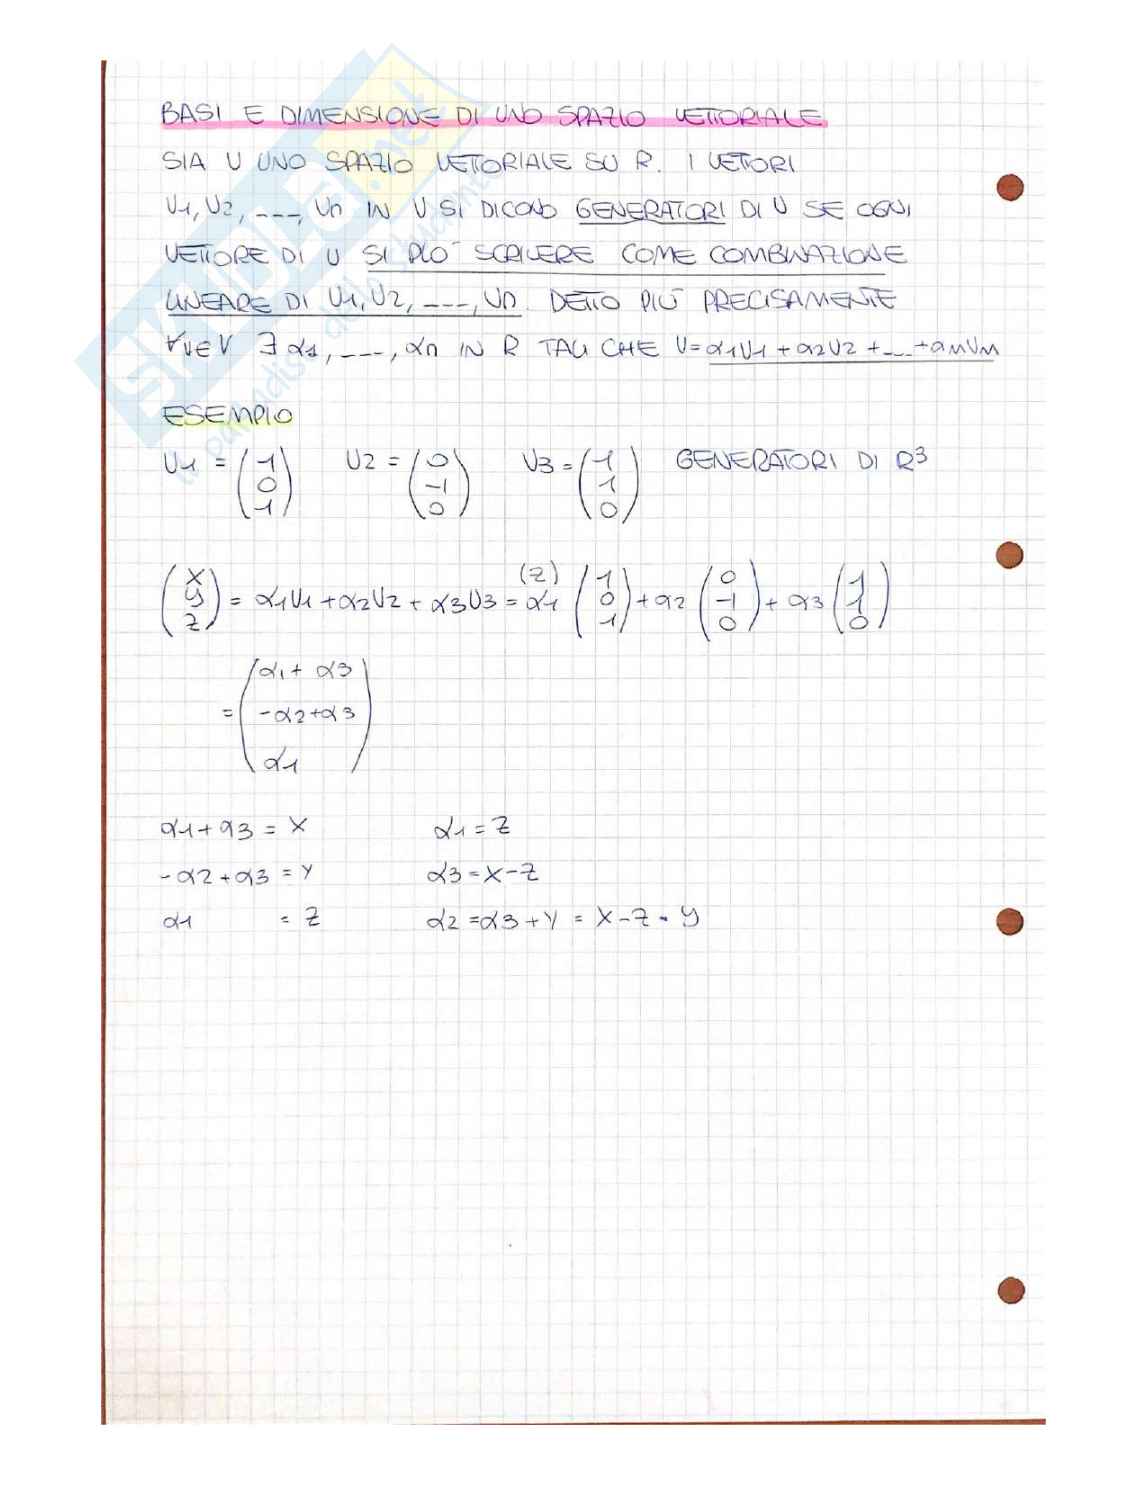 BASI E DIMENSIONE DI UNO SPAZIO VETTORIALE
SIA V UNO SPAZIO VETTORIALE SU R. I VETTORI
V1, V2, ---, Vn IN V SI DICONO GENERATORI DI V SE OGNI
VETTORE DI V SI PUÒ SCRIVERE COME COMBINAZIONE
LINEARE DI V1, V2, ---, Vn. DETTO PIÙ PRECISAMENTE
∀v∈V ∃ α1, ---, αn IN R TALI CHE V=α1V1 + α2V2 + --- + anVn
ESEMPIO
V1 = (1 0 1) V2 = (0 -1 0) V3 = (1 1 0) GENERATORI DI R³
(x y z) = α1V1 + α2V2 + α3V3 = (z) α1 (1 0 1) + α2 (0 -1 0) + α3 (1 1 0)
= (α1 + α3
-α2 + α3
α1)
α1 + α3 = X α1 = Z
-α2 + α3 = Y α3 = X - Z
α1 = Z α2 = α3 + Y = X - Z - Y
SKUOLA.net
il paradiso dello studente